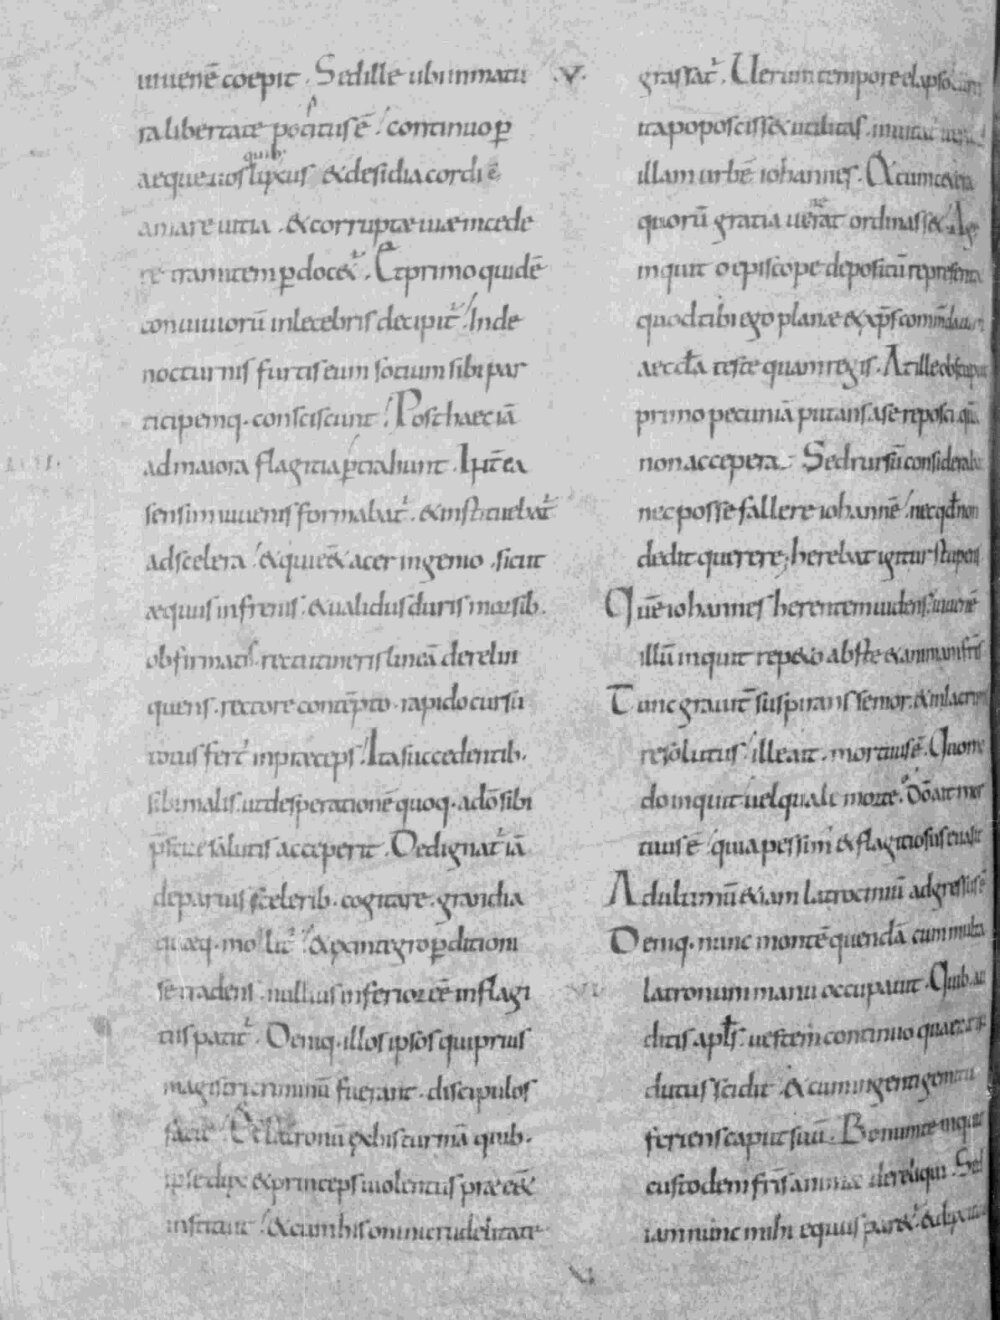 iuuenē coepit. Sed ille ubi inmatu
ra libertate potitus ē, continuo p̄
aeque uos lixus & desidia cordi ē
amare uitia. & corruptae uiae incede
re tramitem p̄docet᷒. Et primo quidē
conuiuiorū inlecebris decipit᷒. Inde
nocturnis furtis eum socium sibi par
ticipemq. consciscunt. Post haec iā
ad maiora flagitia p̄trahunt. Int̄ea
sensim iuuenis formabat᷒. & instituebat᷒
ad scelera. & qui eēt acer ingenio. sicut
aequus infrenis. & ualidus duris morsib.
obfirmatis. recti itineris lineā derelin
quens. rectore contēpto. rapido cursu
totus fert᷒ in praeceps. Ita succedentib.
sibi malis. ut desperationē quoq. a dō sibi
p̄stitae salutis acceperit. Dedignat᷒ iā
de paruis sceleribꝫ. cogitare. grandia
quaeq. molit᷒. & ex integro p̄ditioni
se tradens. nullius inferior eē in flagi
tiis patit᷒. Deniq. illos ipsos qui prius
magistri criminū fuerant. discipulos
facit. Et latronū ex his turmā quib.
ipse dux & princeps uiolentus prae eēt
instituit. & cum his omni crudelitate
V.
grassat᷒. Uerum tempore elapso cum
ita poposcisset utilitas. inuitat᷒
illam urbē iohannes. At cum cetera
quorū gratia uenerat ordinasset. Age
inquit o episcope depositū repraesenta
quod tibi ego plane & xp̄s commendauimus
aeccl̄a teste quam regis. At ille obstupuit
primo pecuniā putans a se reposci quā
non accepera. Sed rursū considerabat
nec posse fallere iohannē. nec qđ non
dedit querere; herebat igitur stupens
Quē iohannes herentem uidens. iuuenē
illū inquit repeto abs te & animam fr̄is
Tunc grauit̄ suspirans senior. & in lacrimis
resolutus. ille ait. mortuus ē. Quomo
do inquit uel quali morte. dō ait mor
tuus ē. quia pessim' & flagitiosus euasit
Ad ultimū etiam latrociniū adgressus ē
Deniq. nunc montē quendā cum multa
latronum manu occupauit. Quib. au
ditis apl̄s. uestem continuo qua erat in
dutus scidit. & cum ingenti gemitu
feriens caput suū. Bonum te inquit
custodem fr̄is animae dereliqui. Sed
iam nunc mihi equus paret᷒. & dux